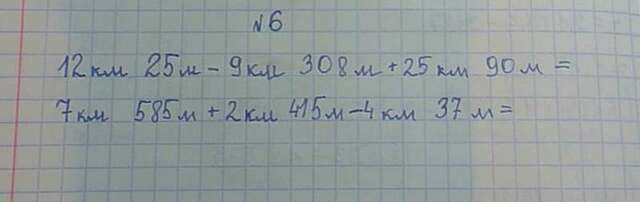 №6
12км 25м - 9км 308м + 25км 90м =
7км 585м + 2км 415м - 4км 37м =